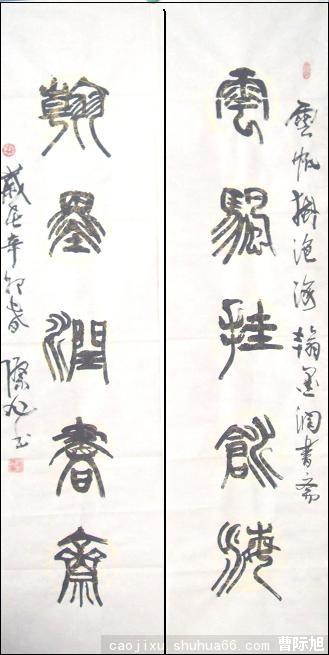 雲帆掛滄海翰墨潤書斋
雲颿挂滄海
翰墨潤書齋
歲在辛卯春
際旭书
caojixu.shuhua66.com 曹际旭